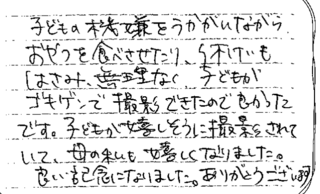 子どもの機嫌をうかがいながら
おやつを食べさせたり、休けいも
はさみ、無理なく子どもが
ゴキゲンで撮影できたので良かった
です。子どもが嬉しそうに撮影されて
いて、母の私も嬉しくなりました。
良い記念になりました。ありがとうございます